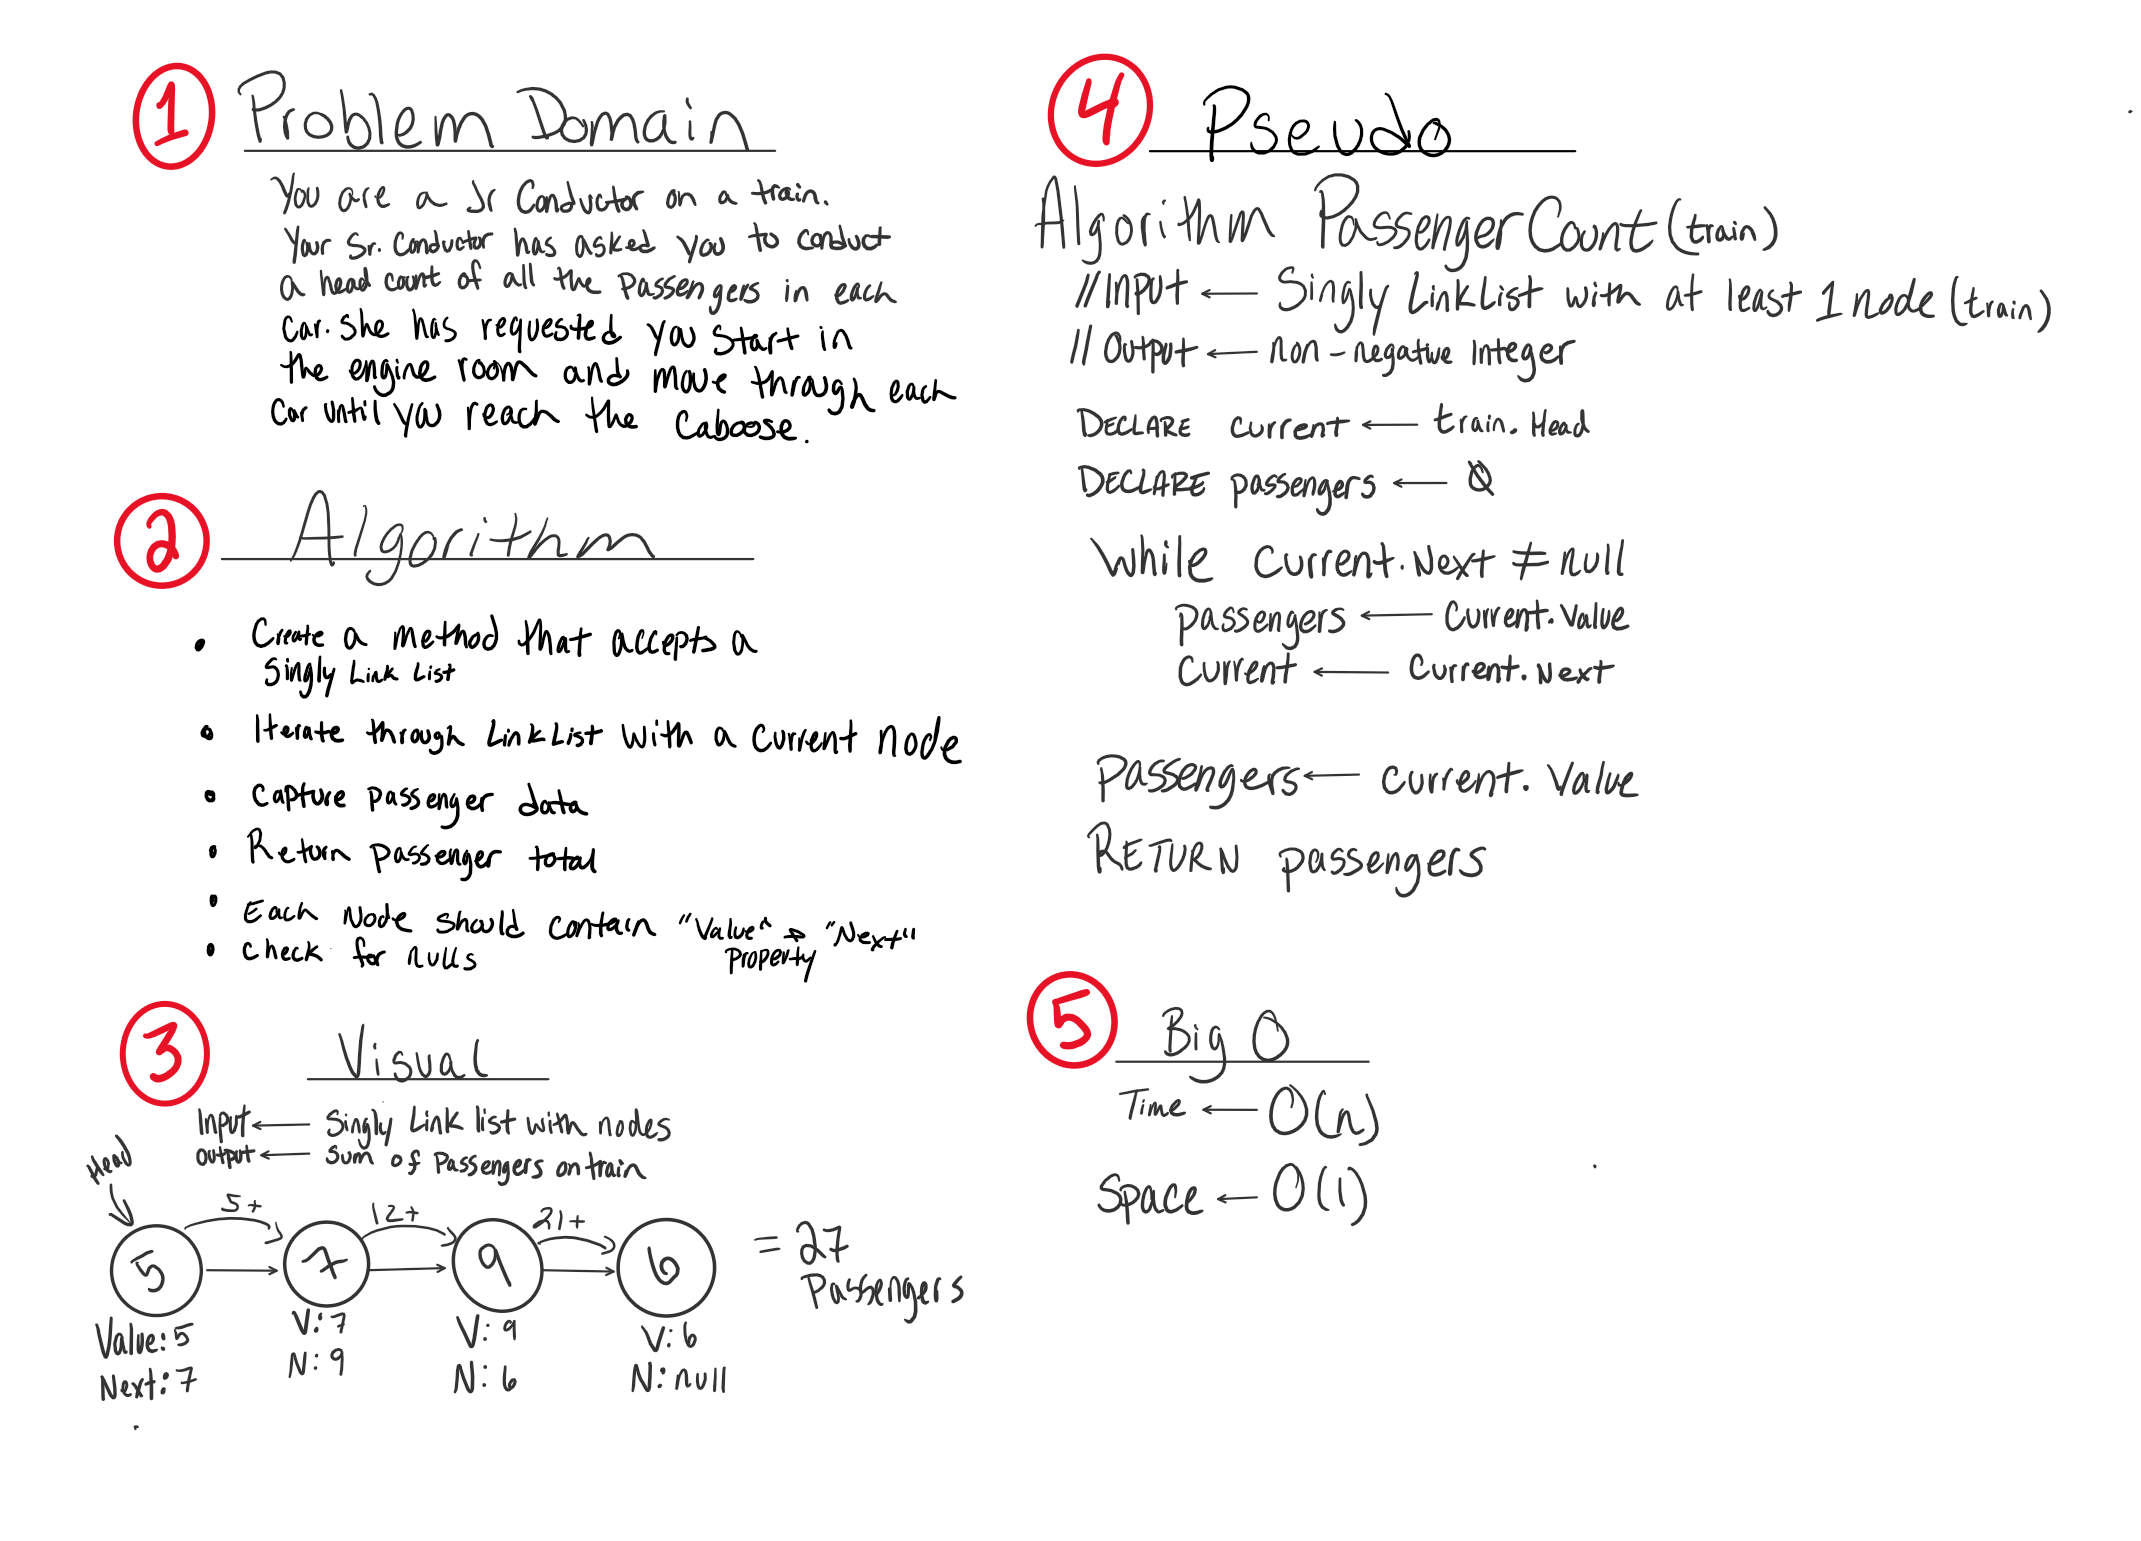 1 Problem Domain
You are a Jr Conductor on a train.
Your Sr. Conductor has asked you to conduct
a head count of all the Passengers in each
Car. She has requested you start in
the engine room and move through each
Car until you reach the Caboose.
2 Algorithm
• Create a method that accepts a
Singly Link List
• Iterate through LinkList with a Current node
• Capture passenger data
• Return passenger total
• Each Node should contain "Value" & "Next"
Property
• Check for nulls
3 Visual
Input ← Singly Link list with nodes
output ← Sum of Passengers on train
Head
5+ 12+ 21+
5 → 7 → 9 → 6 = 27
Passengers
Value: 5 V: 7 V: 9 V: 6
Next: 7 N: 9 N: 6 N: null
4 Pseudo
Algorithm PassengerCount(train)
// Input ← Singly LinkList with at least 1 node (train)
// Output ← non-negative Integer
DECLARE current ← train.Head
DECLARE passengers ← 0
While Current.Next ≠ null
passengers ← Current.Value
Current ← Current.Next
Passengers ← Current.Value
RETURN passengers
5 Big O
Time ← O(n)
Space ← O(1)